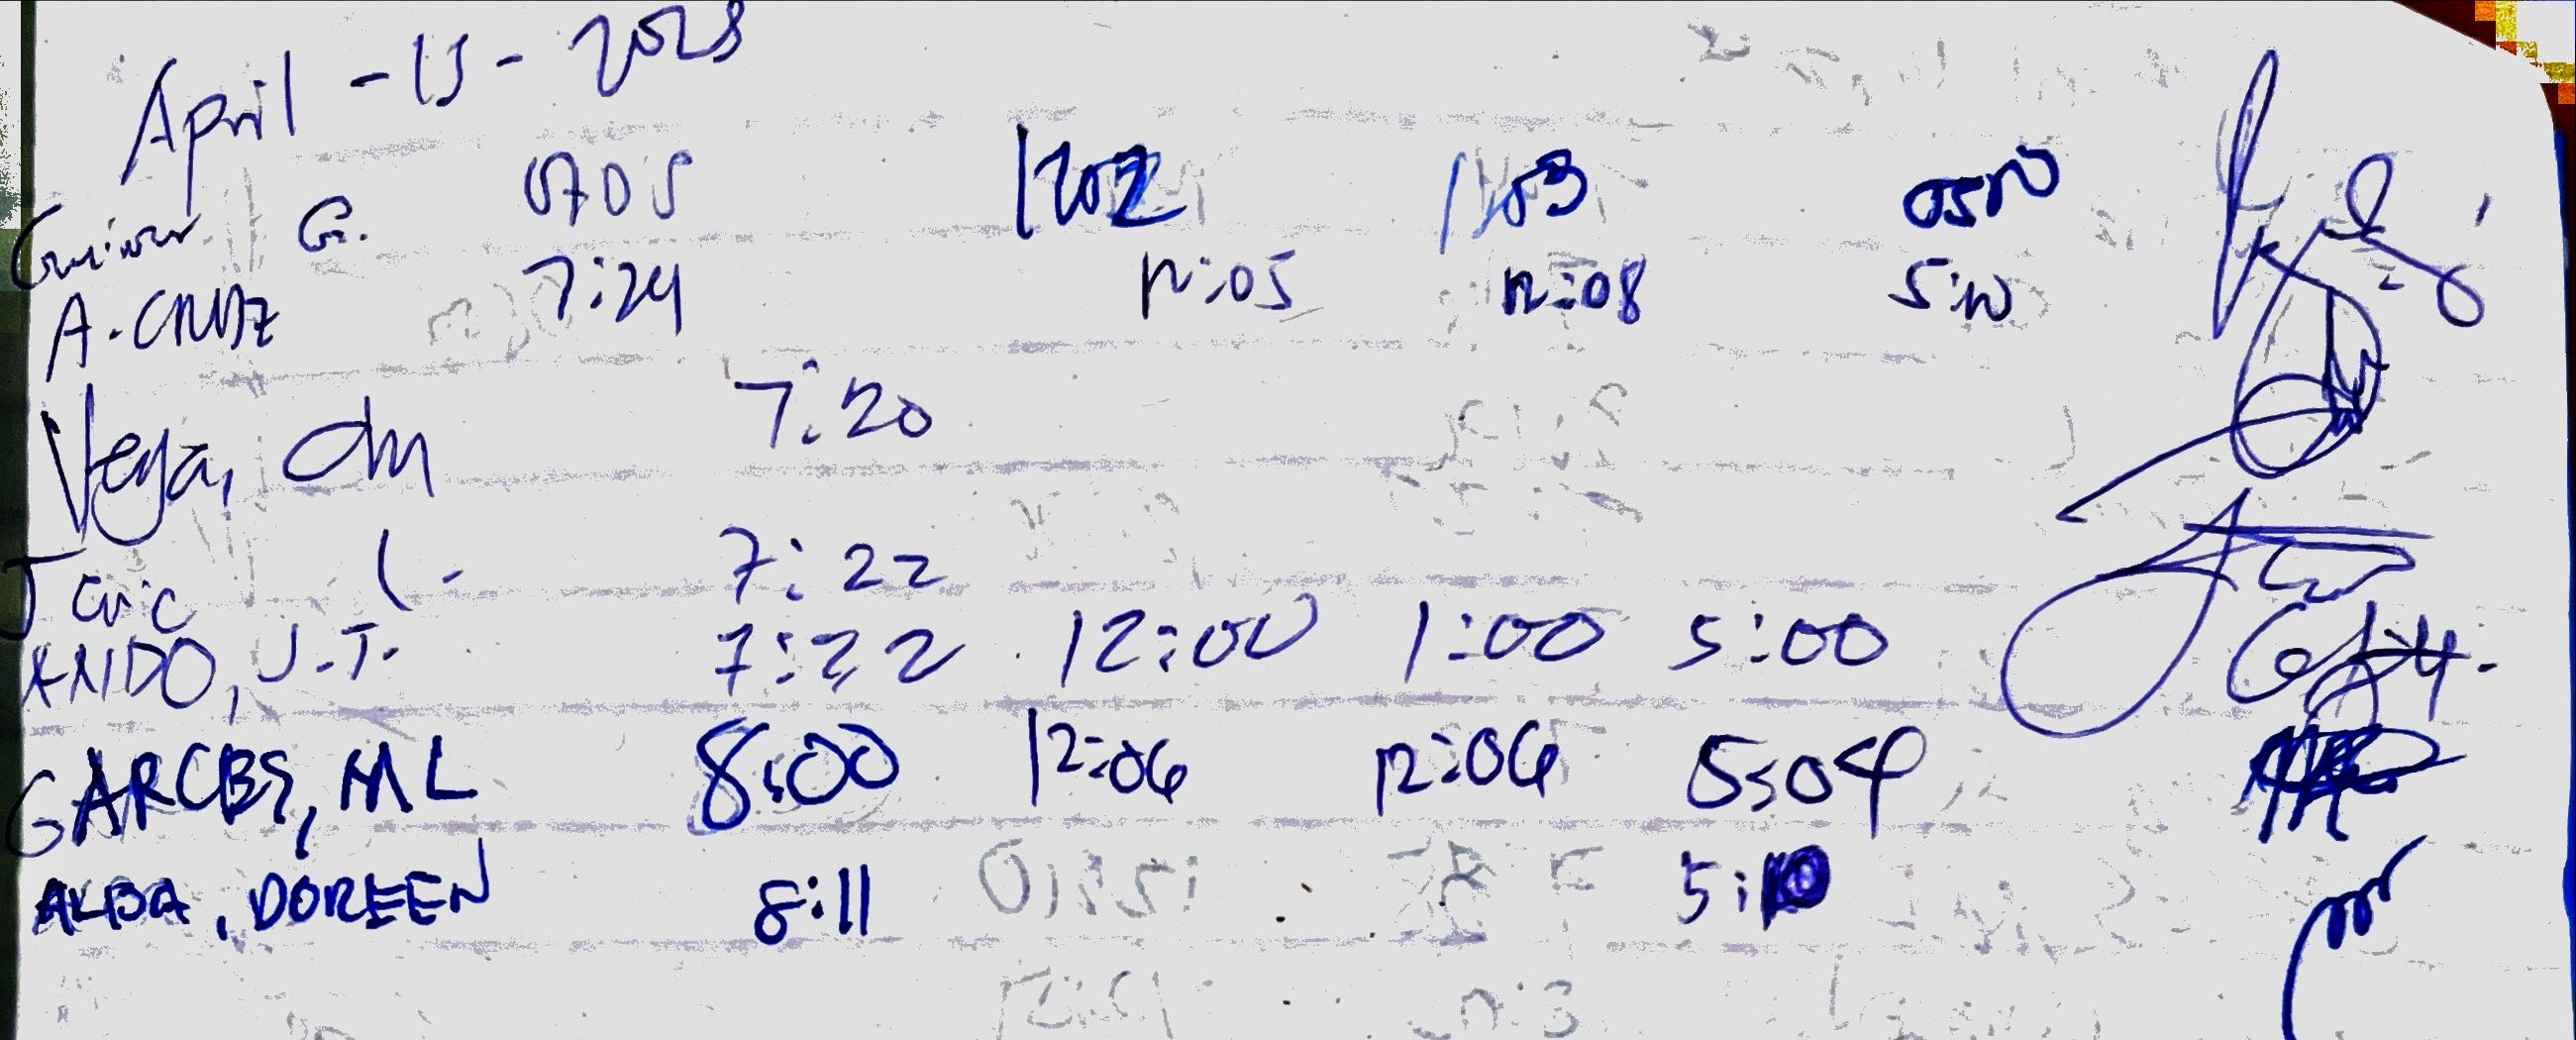 April - 13 - 2023
G. 0705 1202 1203 0510
A. CRUZ 7:24 12:05 12:08 5:10
Vega, dm 7:20
7:22
ANDO, J.T. 7:22 12:00 1:00 5:00
GARCES, ML 8:00 12:06 12:06 5:04
ALBA, DOREEN 8:11 5:10